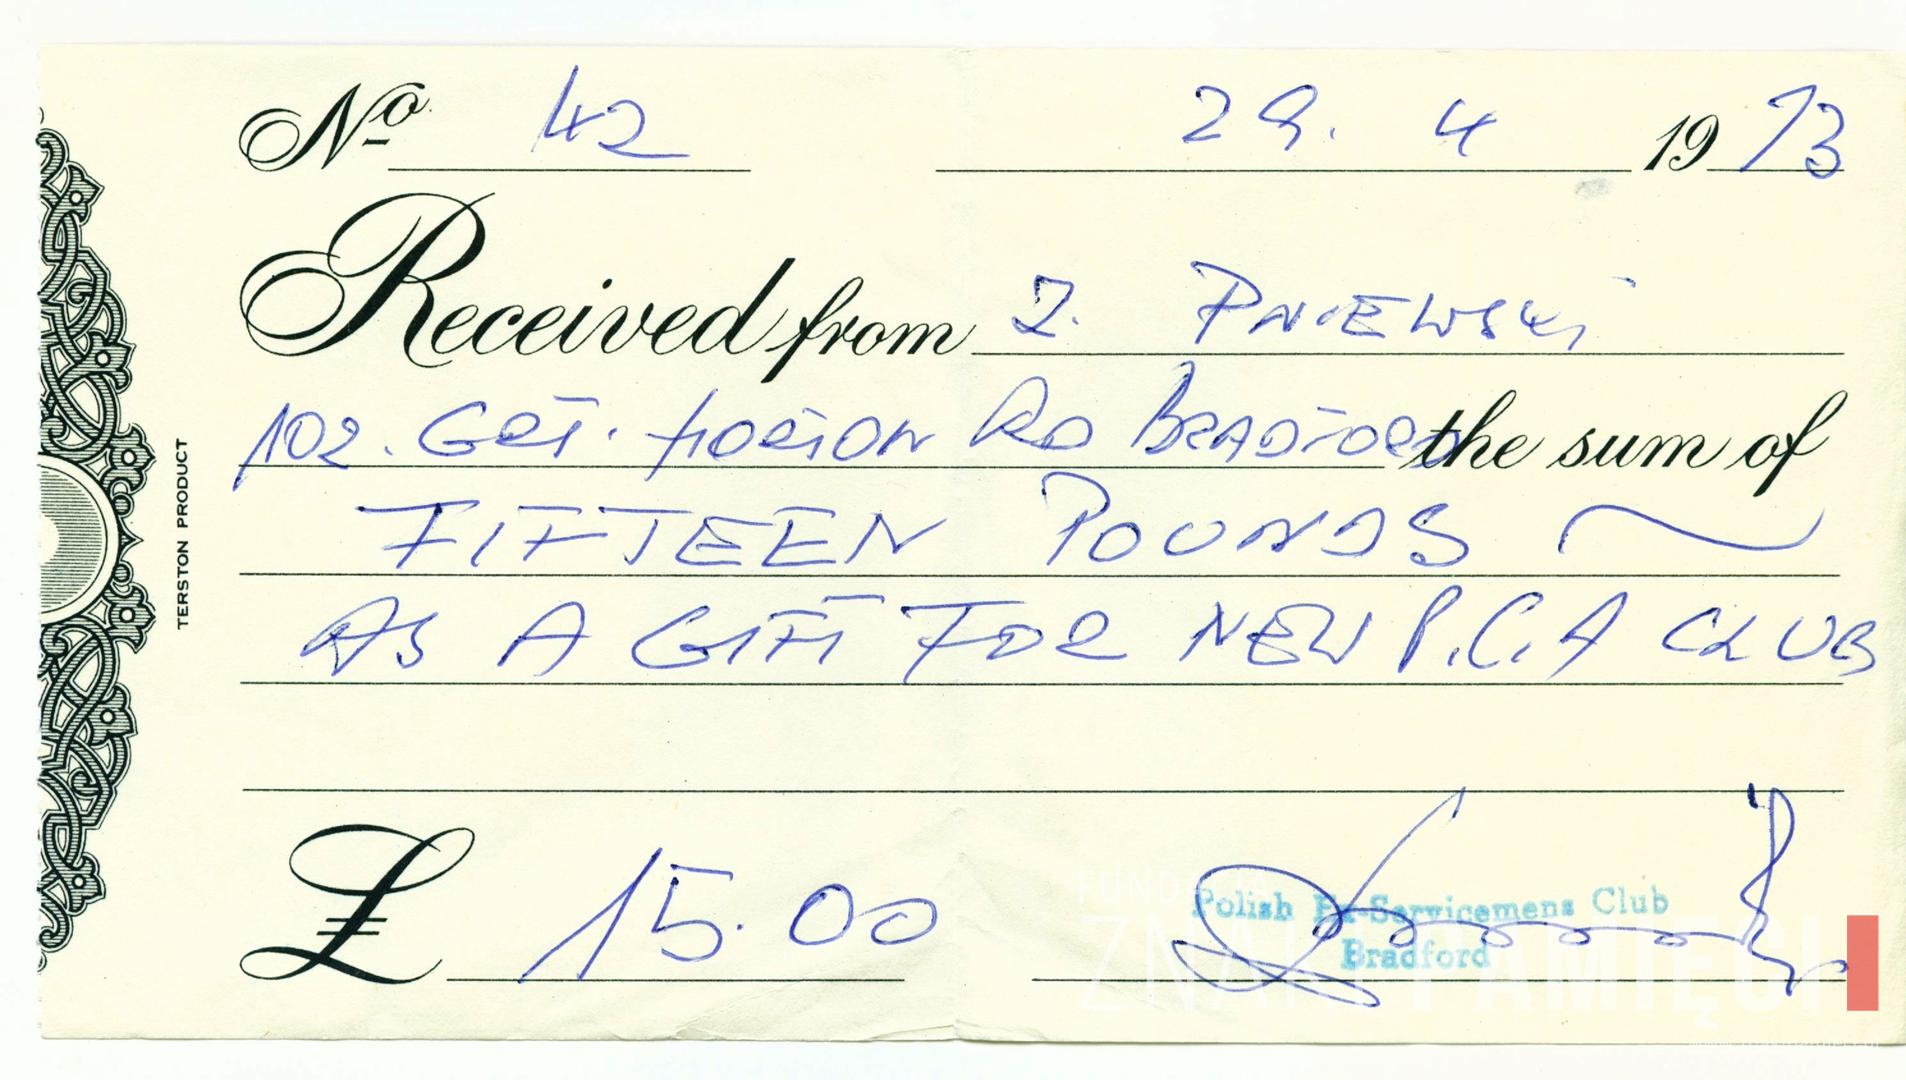 No 42 29. 4 1973
Received from Z. PNIEWSKI
102. GRT. HORTON RD BRADFORD the sum of
FIFTEEN POUNDS
AS A GIFT FOR NEW P.C.A CLUB
£ 15.00
Polish Ex-Servicemens Club
Bradford
TERSTON PRODUCT
FUNDACJA
ZNAKI PAMIĘCI